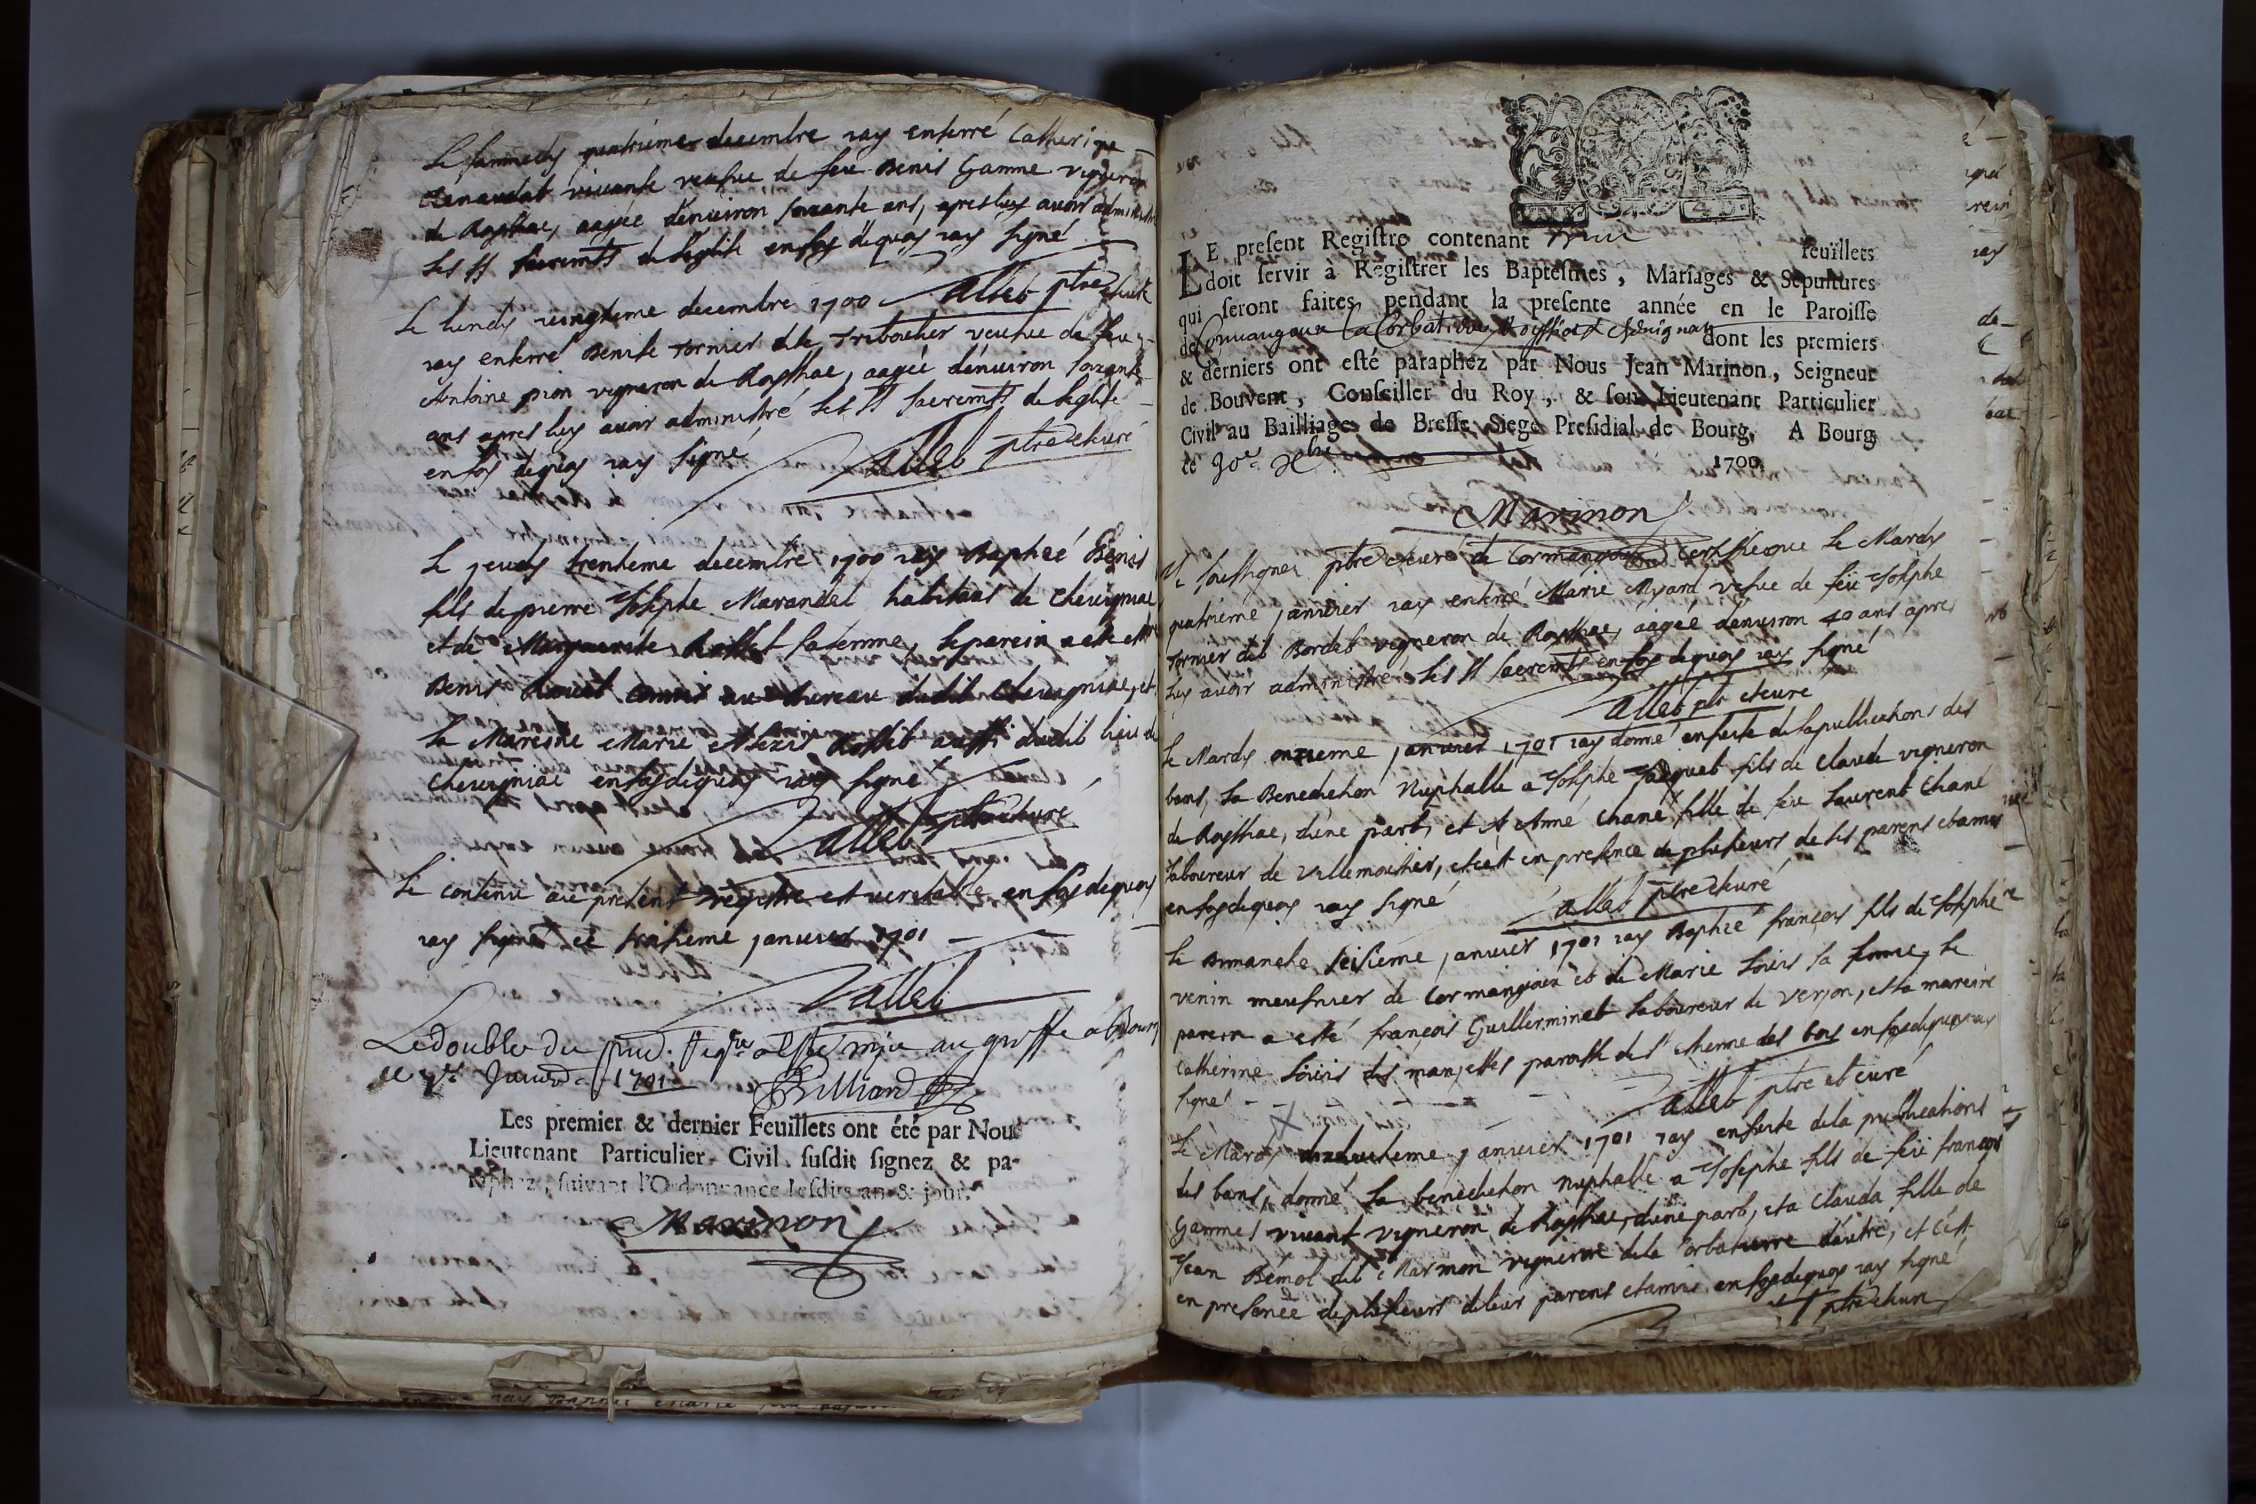 Le sammedy quatriéme decembre iay enterré Catherine
Renaudat vivante veufue de feu Benis Gamme vigneron
de Roysthae, aagée denuiron soixante ans, apres luy auoir administré
les SS sacremts de leglise en foy dequoy iay signé
Vallet ptre et curé
Le lundy vingtieme decembre 1700
iay enterré Benite Tornier dite Tribouler veufue de feu
Antoine pion vigneron de Roysthae, aagée denuiron soixante
ans apres luy auoir administré les SS sacremts de leglise
en foy dequoy iay signé Vallet ptre et curé
Le jeudy trentieme decembre 1700 iay Baptizé Benis
fils de pierre Josephe Marandet habitant de cheuigniac
et de Marguerite Rosset sa femme, le parein a esté
Benis commis au bureau dudit cheuigniac, et
la Mareine Marie Rosset aussi dudit lieu de
cheuigniac en foy dequoy iay signé
Vallet ptre et curé
Le contenu au present registre est veritable en foy dequoy
iay signé ce troisieme januier 1701
Vallet
Le double du a esté mis au greffe a Bourg
ce Januier 1701 Billiard
Les premier & dernier Feuillets ont été par Nous
Lieutenant Particulier Civil, susdit signez & pa-
raphez, suivant l'Ordonnance lesdits an & jour.
Marinon
LE present Registre contenant feüillets
doit servir à Registrer les Baptesmes, Mariages & Sepultures
qui seront faites pendant la presente année en le Paroisse
de Cormangoux La Corbatiere Roissiat & Cheuignat dont les premiers
& derniers ont esté paraphez par Nous Jean Marinon, Seigneur
de Bouvent, Conseiller du Roy, & son Lieutenant Particulier
Civil au Bailliage de Bresse Siege Presidial de Bourg, A Bourg
le 30e Xbre 1700
Marinon
Je soussigner ptre et curé de Cormangoux Certifie que le Mardy
quatrieme januier iay enterré Marie Myard vefue de feu Josephe
Tornier dit Bordet vigneron de Roysthae, aagée denuiron 40 ans apres
luy auoir administré les SS sacremts en foy dequoy iay signé
Vallet ptre et curé
Le Mardy onzieme januier 1701 iay donné en suite de la publications des
bans, la Benediction Nuptialle a Josephe Jacquet fils de Claude vigneron
de Roysthae, dune part, et A Anné Chané fille de feu Laurent Chané
laboureur de Villemoutier, et cest en presence de plusieurs de les parens et amis
en foy dequoy iay signé Vallet ptre et curé
Le Dimanche seisieme januier 1701 iay Baptizé françoy fils de Josephe
venin meusnier de Cormangoux et de Marie Louis sa femme, le
parein a esté françois Guillerminet laboureur de Verjon, et la mareine
Catherine Louis des manjettes paroisse de St Etienne des bois en foy dequoy iay
signé Vallet ptre et curé
Le Mardy dixhuitieme januier 1701 iay en suite de la publications
des bans, donné la benediction nuptialle a Josephe fils de feu françois
Gammes vivant vigneron de Roysthae, dune part, et a Clauda fille de
Jean Bémol dit Marmon vigneron de la Corbatiere dautre, et Cest
en presence de plusieurs de leur parens et amis en foy dequoy iay signé
ptre et curé